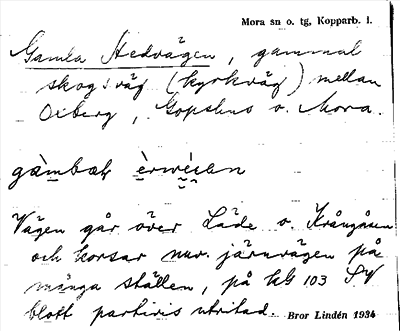 Mora sn o. tg, Kopparb. l.
Gamla Hedvägen, gammal
skogsväg (kyrkväg) mellan
Oxberg, Gopshus o. Mora.
gàmbał
Vägen går över Läde o. Krångåsen
och korsar nuv. järnvägen på
många ställen, på kbl 103 SV
blott partivis utritad. Bror Lindén 1934